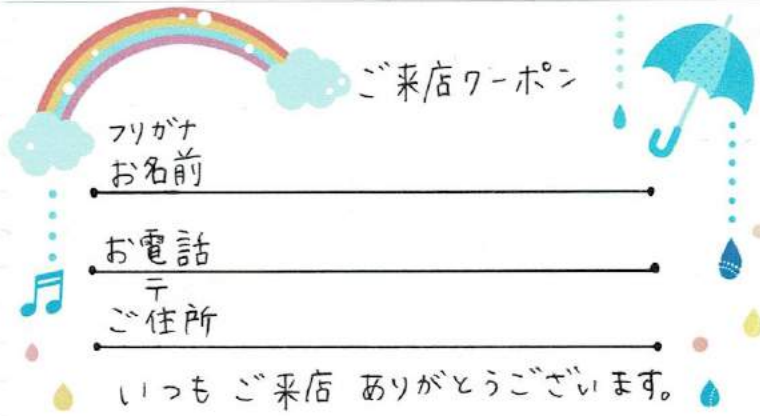 ご来店クーポン
フリガナ
お名前
お電話
〒
ご住所
いつも ご来店 ありがとうございます。